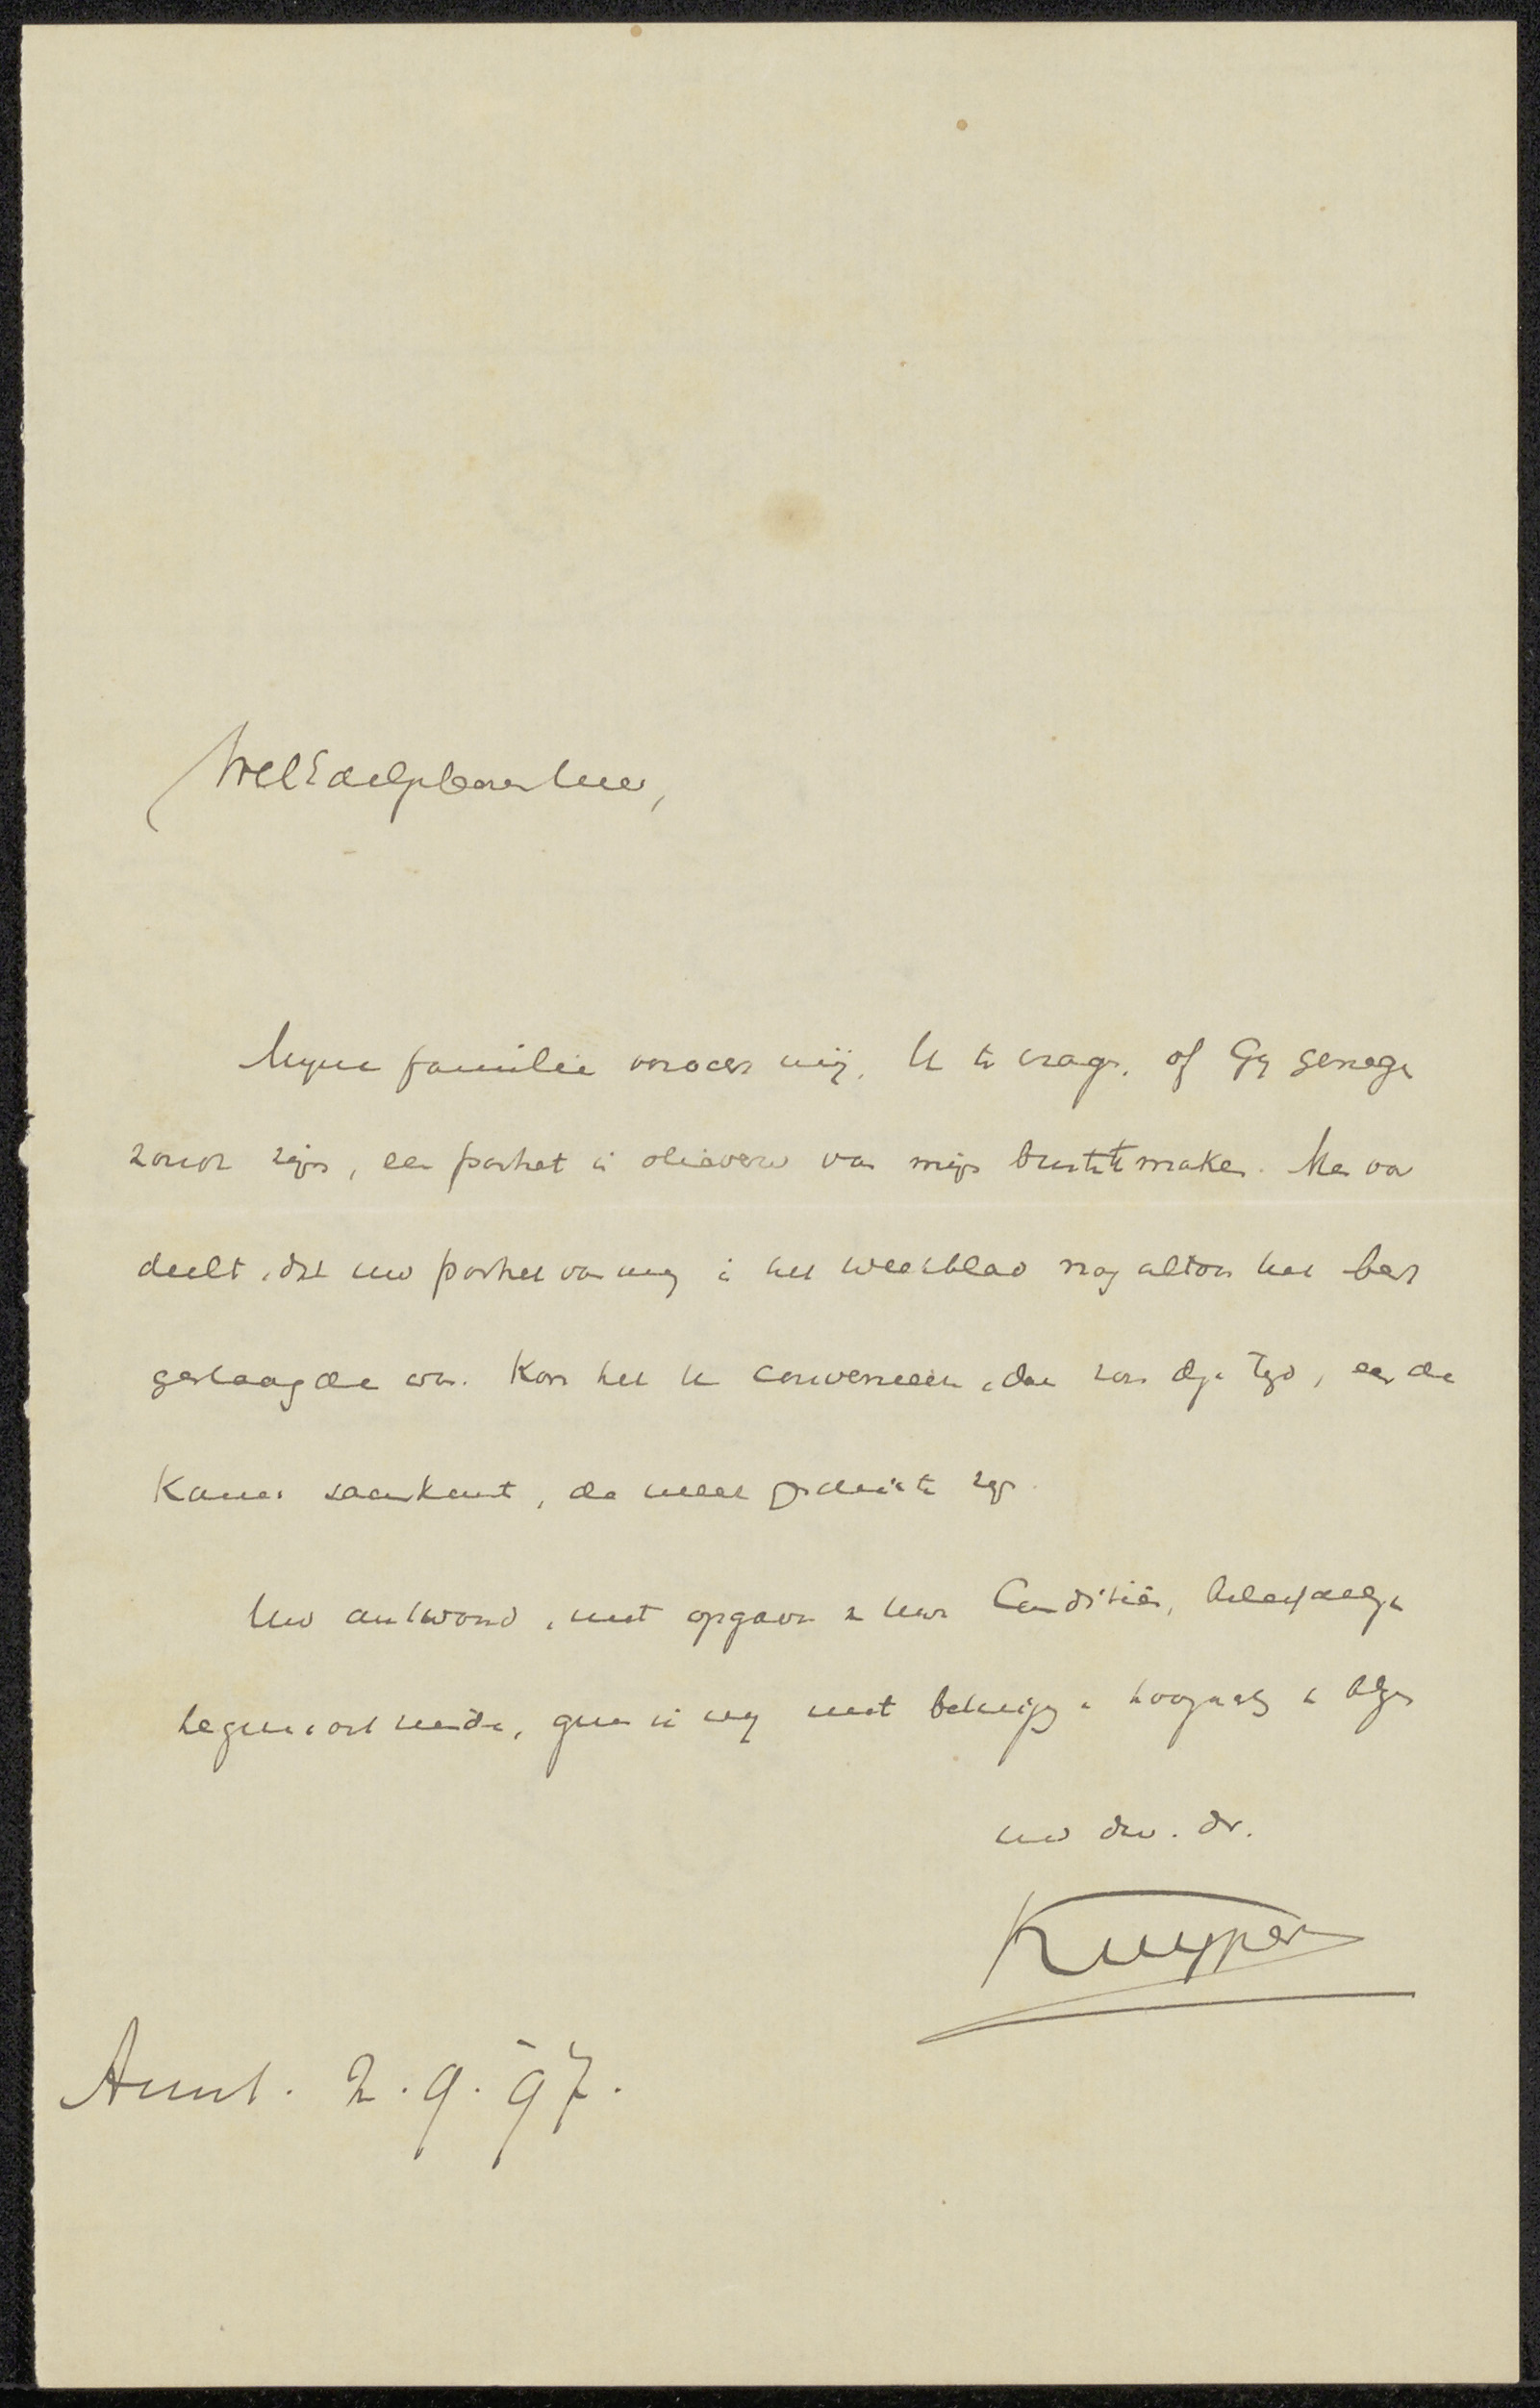 WelEdelgeboren Heer,
Mijne familie verzoekt mij, U te vragen, of Gij genegen
zoudt zijn, een portret in olieverw van mijn buste te maken. Men oor
deelt, dat uw portret van mij in het weekblad nog altoos het best
geslaagde was. Kon het U convenieeren, dan zou deze tijd, eer de
Kamer saamkomt, de meest geschikte zijn.
Uw antwoord, met opgave van uwe Conditiën,
tegemoet ziende, heb ik de eer met hoogachting te zijn
uw dw. dr.
Kuyper
Amst. 2.9.97.